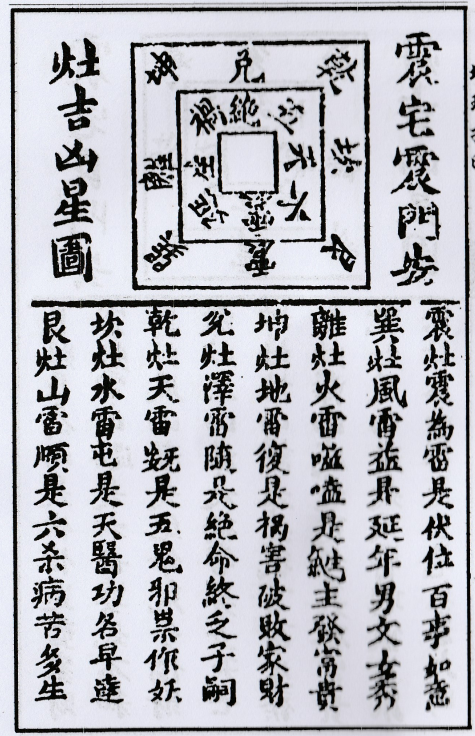 震宅震門安
灶吉凶星圖
兌
震
震灶震為雷是伏位百事如意
巽灶風雷益是延年男文女秀
離灶火雷噬嗑是生氣主發富貴
坤灶地雷復是禍害破敗家財
兌灶澤雷隨是絕命終乏子嗣
乾灶天雷无妄是五鬼邪祟作妖
坎灶水雷屯是天醫功名早達
艮灶山雷頤是六杀病苦多生